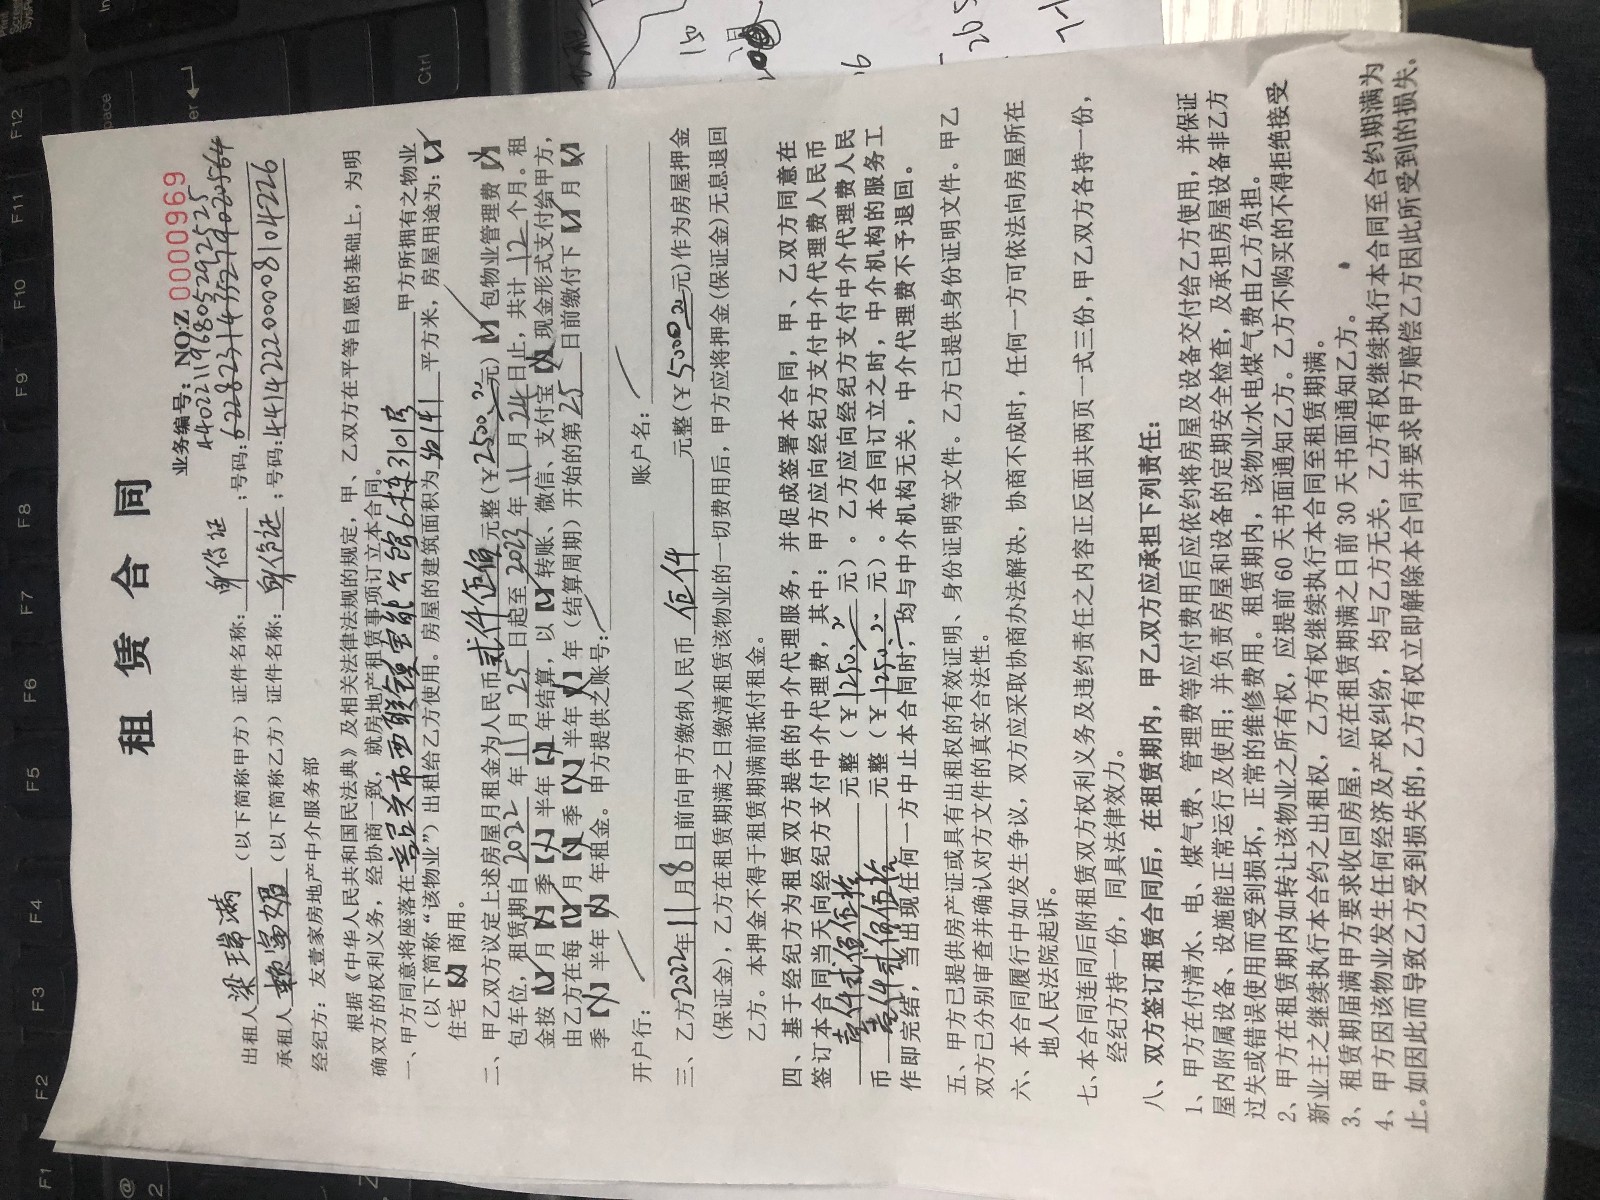 租 赁 合 同
业务编号：NO:Z 0000969
440221196805292525
出租人 梁瑞满 （以下简称甲方）证件名称： 身份证 ；号码：
承租人 （以下简称乙方）证件名称： 身份证 ；号码：441422200008104226
经纪方：友壹家房地产中介服务部
根据《中华人民共和国民法典》及相关法律法规的规定，甲、乙双方在平等自愿的基础上，为明
确双方的权利义务，经协商一致，就房地产租赁事项订立本合同。
一、甲方同意将座落在 6栋3101房 甲方所拥有之物业
（以下简称“该物业”）出租给乙方使用。房屋的建筑面积为 平方米，房屋用途为：【√】
住宅【 】商用。
二、甲乙双方议定上述房屋月租金为人民币 贰仟伍佰 元整（￥2500 元）【 】包物业管理费【 】
包车位，租赁期自 2022 年 11 月 25 日起至 2023 年 11 月 24 日止，共计 12 个月。租
金按【√】月【 】季【 】半年【 】年结算，以【√】转账、微信、支付宝【 】现金形式支付给甲方，
由乙方在每【√】月【 】季【 】半年【 】年（结算周期）开始的第 25 日前缴付下【√】月【 】
季【 】半年【 】年租金。甲方提供之账号：
开户行： 账户名：
三、乙方 2022年 11 月 8 日前向甲方缴纳人民币 伍仟 元整（￥5000 元）作为房屋押金
（保证金），乙方在租赁期满之日缴清租赁该物业的一切费用后，甲方应将押金（保证金）无息退回
乙方。本押金不得于租赁期满前抵付租金。
四、基于经纪方为租赁双方提供的中介代理服务，并促成签署本合同，甲、乙双方同意在
签订本合同当天向经纪方支付中介代理费，其中：甲方应向经纪方支付中介代理费人民币
壹仟贰佰伍拾 元整（￥1250 元）。乙方应向经纪方支付中介代理费人民
币 壹仟贰佰伍拾 元整（￥1250 元）。本合同订立之时，中介机构的服务工
作即完结，当出现任何一方中止本合同时，均与中介机构无关，中介代理费不予退回。
五、甲方已提供房产证或具有出租权的有效证明、身份证明等文件。乙方已提供身份证明文件。甲乙
双方已分别审查并确认对方文件的真实合法性。
六、本合同履行中如发生争议，双方应采取协商办法解决，协商不成时，任何一方可依法向房屋所在
地人民法院起诉。
七、本合同连同后附租赁双方权利义务及违约责任之内容正反面共两页一式三份，甲乙双方各持一份，
经纪方持一份，同具法律效力。
八、双方签订租赁合同后，在租赁期内，甲乙双方应承担下列责任：
1、甲方在付清水、电、煤气费、管理费等应付费用后应依约将房屋及设备交付给乙方使用，并保证
屋内附属设备、设施能正常运行及使用；并负责房屋和设备的定期安全检查，及承担房屋设备非乙方
过失或错误使用而受到损坏，正常的维修费用。租赁期内，该物业水电煤气费由乙方负担。
2、甲方在租赁期内如转让该物业之所有权，应提前 60 天书面通知乙方。乙方不购买的不得拒绝接受
新业主之继续执行本合约之出租权，乙方有权继续执行本合同至租赁期满。
3、租赁期届满甲方要求收回房屋，应在租赁期满之日前 30 天书面通知乙方。
4、甲方因该物业发生任何经济及产权纠纷，均与乙方无关，乙方有权继续执行本合同至合约期满为
止。如因此而导致乙方受到损失的，乙方有权立即解除本合同并要求甲方赔偿乙方因此所受到的损失。
F1
F2
F3
F4
F5
F6
F7
F8
F9
F10
F11
F12
Ctrl